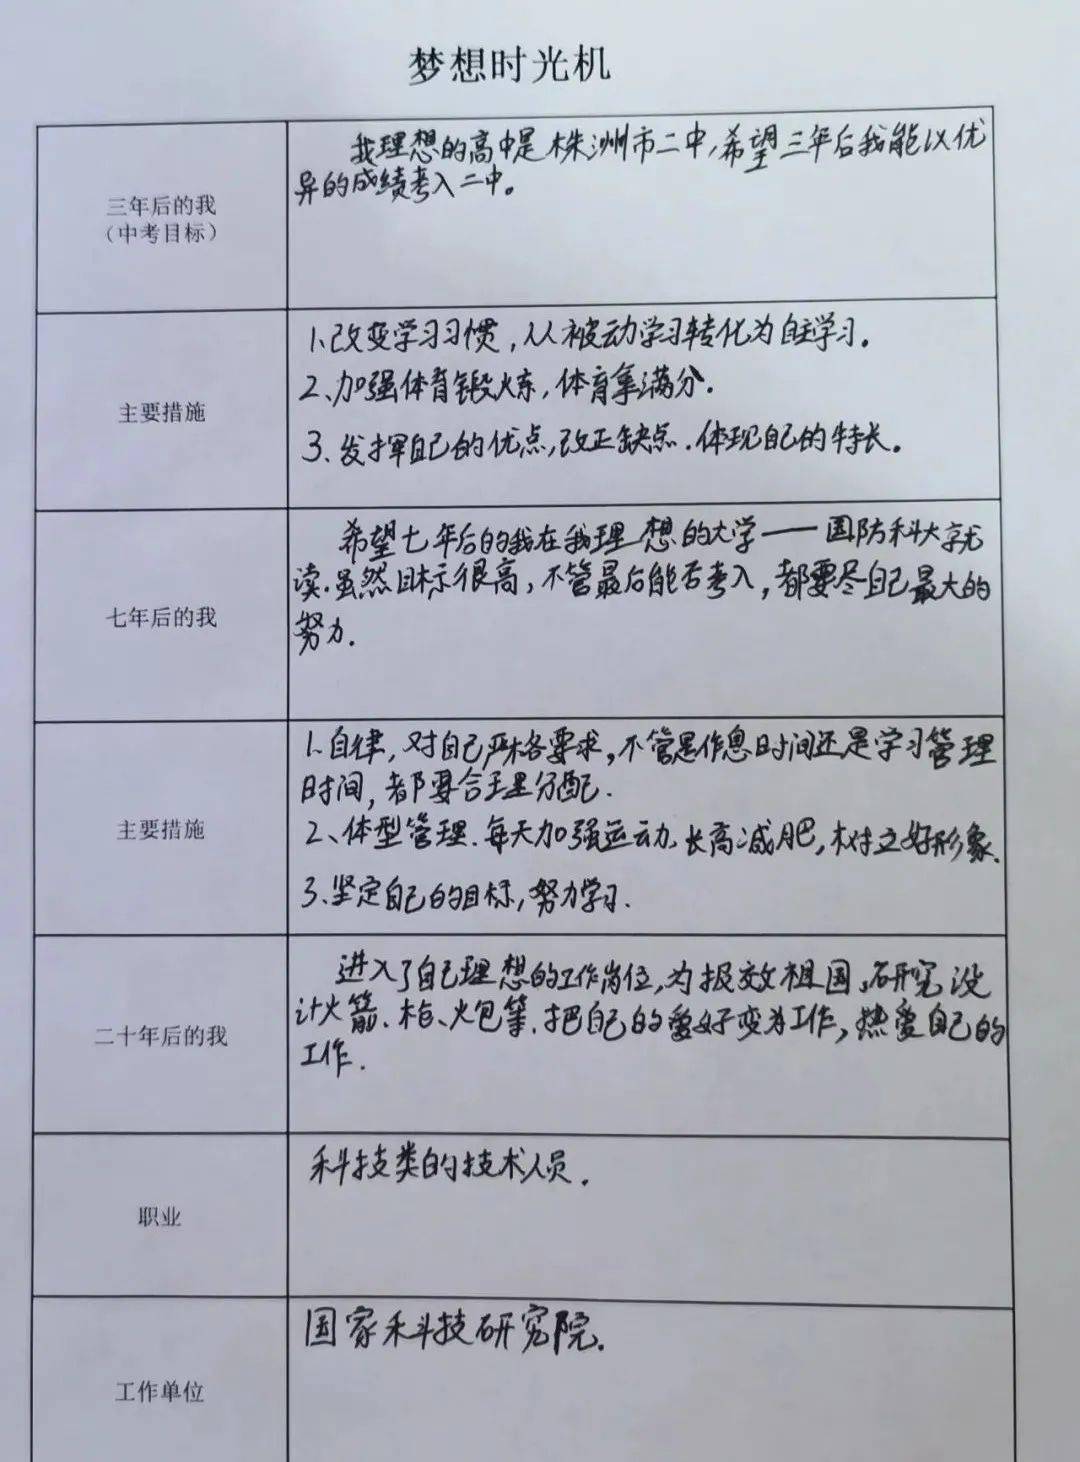 梦想时光机
三年后的我
（中考目标）
我理想的高中是株洲市二中,希望三年后我能以优
异的成绩考入二中。
主要措施
1、改变学习习惯，从被动学习转化为自主学习。
2、加强体育锻炼，体育拿满分.
3、发挥自己的优点,改正缺点.体现自己的特长。
七年后的我
希望七年后的我在我理想的大学——国防科大就
读.虽然目标很高，不管最后能否考入，都要尽自己最大的
努力.
主要措施
1.自律，对自己严格要求,不管是作息时间还是学习管理
时间，都要合理分配.
2、体型管理.每天加强运动、长高减肥，树立好形象.
3、坚定自己的目标，努力学习.
二十年后的我
进入了自己理想的工作岗位,为报效祖国,研究设
计火箭、枪、火包等.把自己的爱好变为工作，热爱自己的
工作.
职业
科技类的技术人员.
工作单位
国家科技研究院.